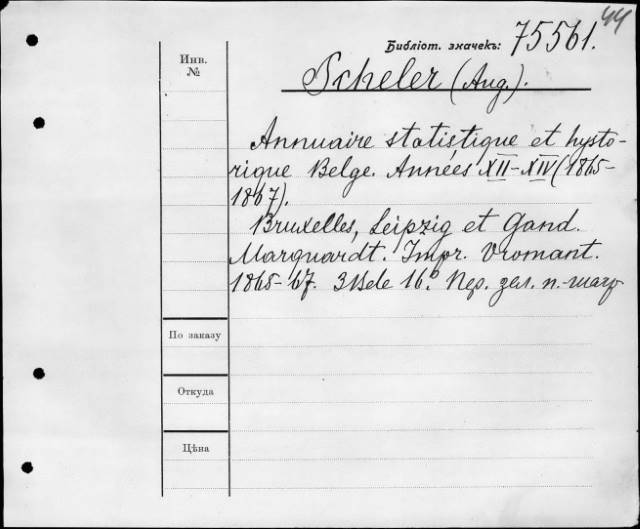 44
Библіот. значекъ: 75561.
Инв. №
Scheler (Aug.).
Annuaire statistique et hysto-
rique Belge. Années XII-XIV (1865-
1867).
Bruxelles, Leipzig et Gand.
Marquardt. Impr. Vromant.
1865-67. 3 Bde 16°. Пер. зел. п.-шагр
По заказу
Откуда
Цѣна